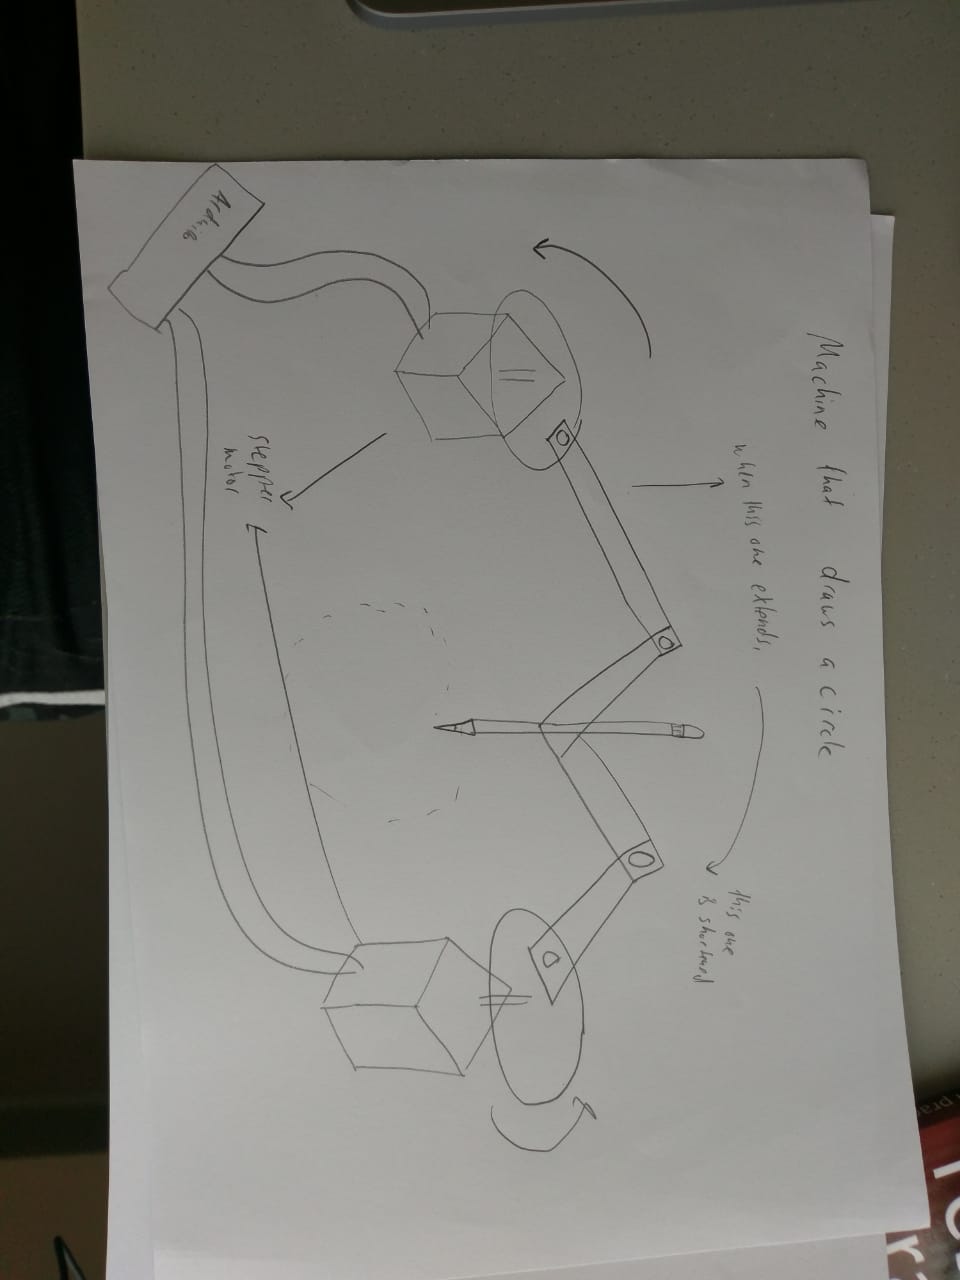 Machine that draws a circle
when this one extends,
this one
is shortened
stepper
motor